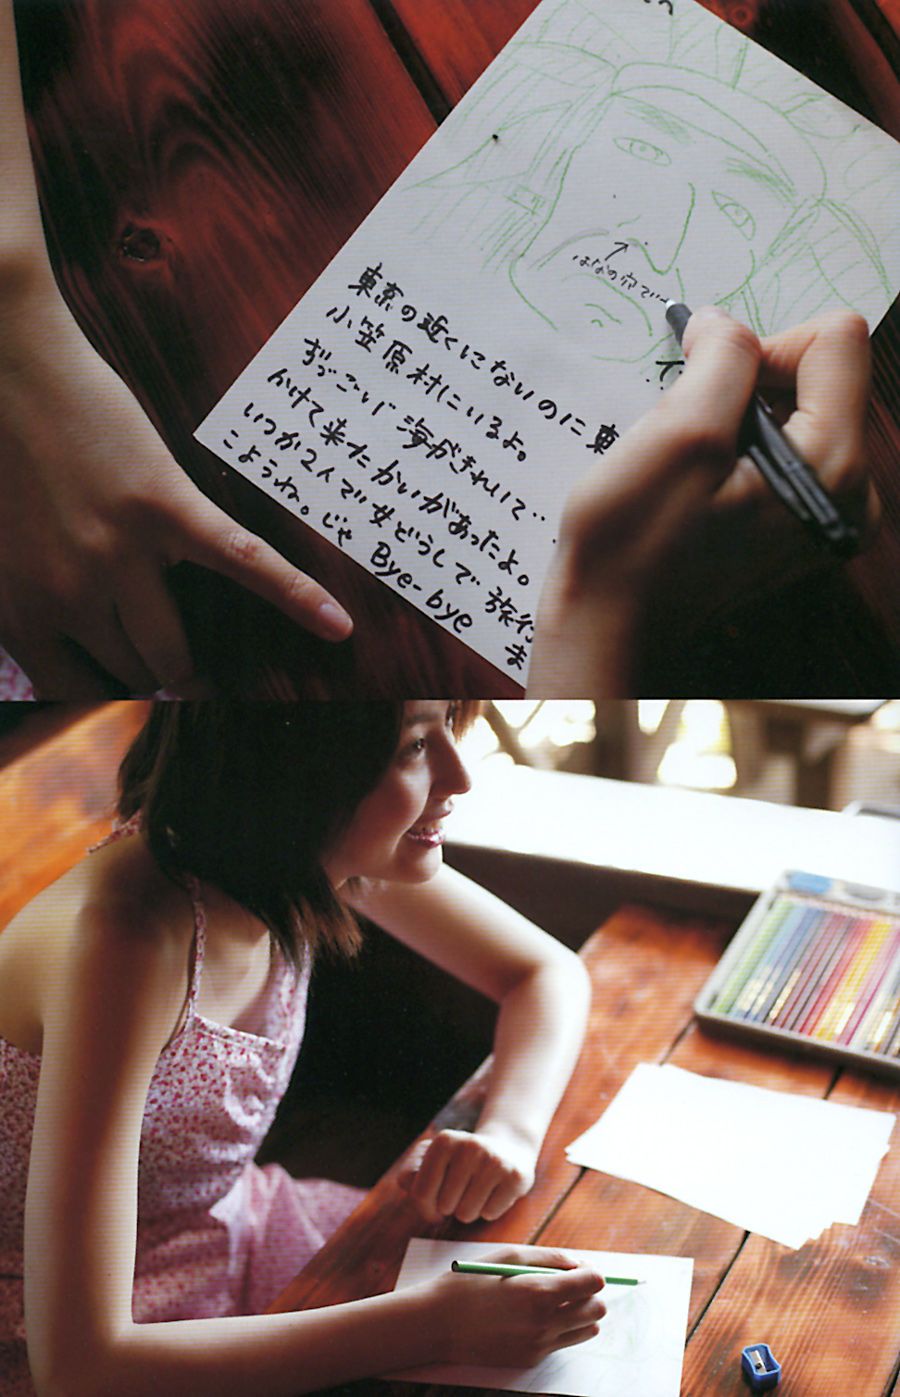 はなの穴で
東京の近くにないのに東
小笠原村にいるよ。
すっごいじ海がきれいで‥
かけて来たかいがあったよ。
いつか2人で女どうしで旅行
こようね。じゃ Bye-bye